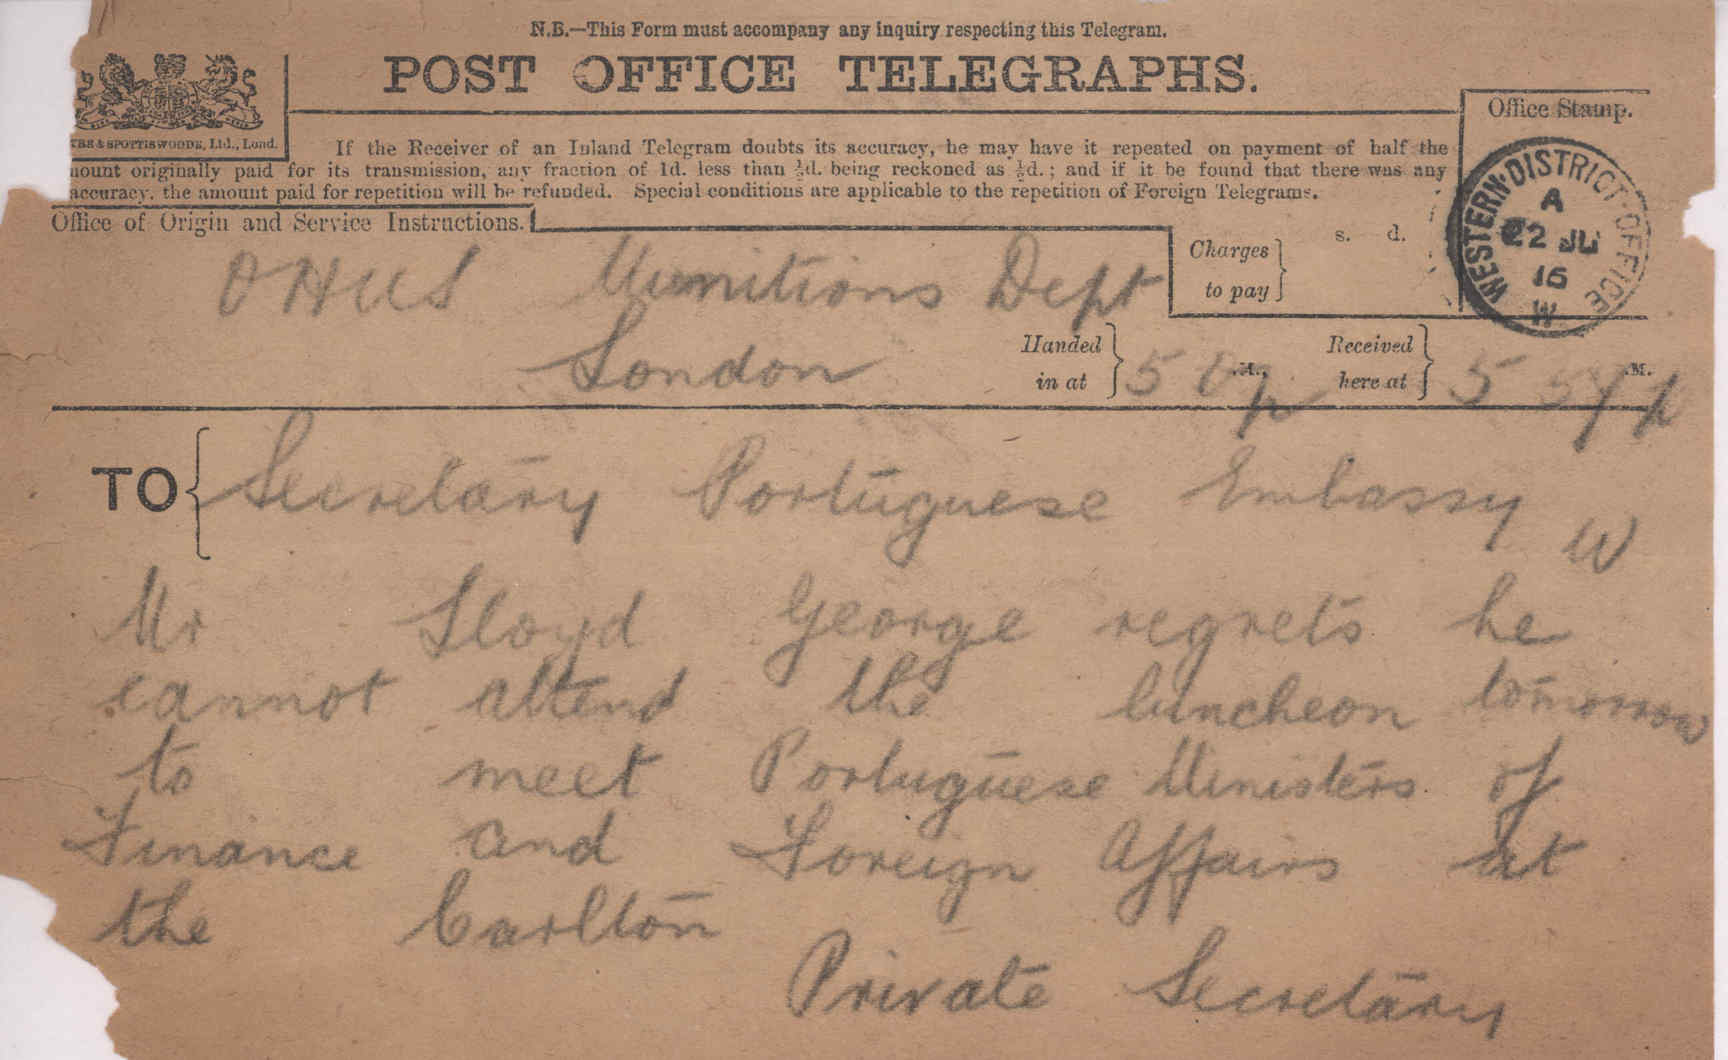 N.B.—This Form must accompany any inquiry respecting this Telegram.
POST OFFICE TELEGRAPHS.
& SPOTTISWOODE, Ltd., Lond.
If the Receiver of an Inland Telegram doubts its accuracy, he may have it repeated on payment of half the
mount originally paid for its transmission, any fraction of 1d. less than ½d. being reckoned as ½d.; and if it be found that there was any
accuracy, the amount paid for repetition will be refunded. Special conditions are applicable to the repetition of Foreign Telegrams.
Office Stamp.
WESTERN·DISTRICT·OFFICE
A
22 JU
16
W
Office of Origin and Service Instructions.
OHMS Munitions Dept
London
Charges to pay
s. d.
Handed in at 5
Received here at 5
.M.
TO Secretary Portuguese Embassy W
Mr Lloyd George regrets he
cannot attend the luncheon tomorrow
to meet Portuguese Ministers of
Finance and Foreign Affairs at
the Carlton
Private Secretary